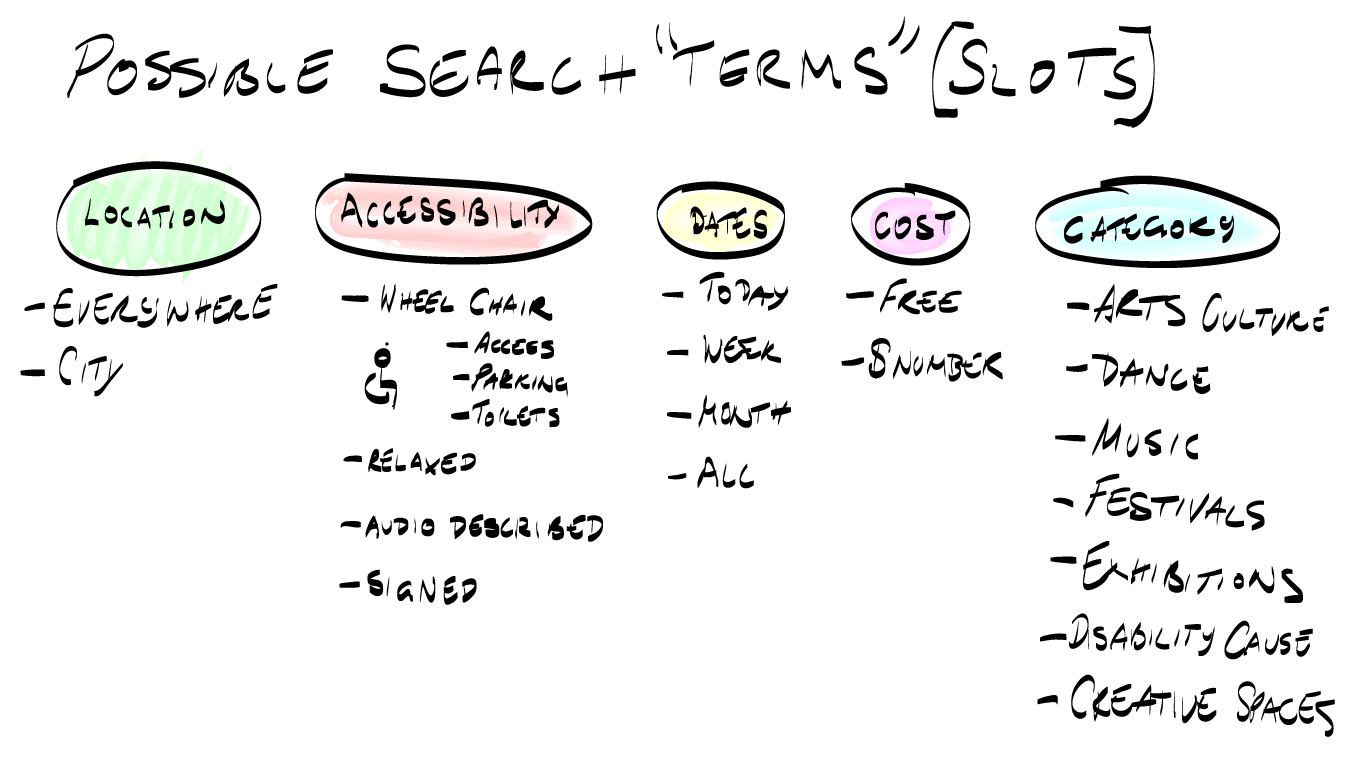 POSSIBLE SEARCH "TERMS" [SLOTS]
LOCATION
- EVERYWHERE
- CITY
ACCESSIBILITY
- WHEEL CHAIR
- ACCESS
- PARKING
- TOILETS
- RELAXED
- AUDIO DESCRIBED
- SIGNED
DATES
- TODAY
- WEEK
- MONTH
- ALL
COST
- FREE
- $NUMBER
CATEGORY
- ARTS CULTURE
- DANCE
- MUSIC
- FESTIVALS
- EXHIBITIONS
- DISABILITY CAUSE
- CREATIVE SPACES